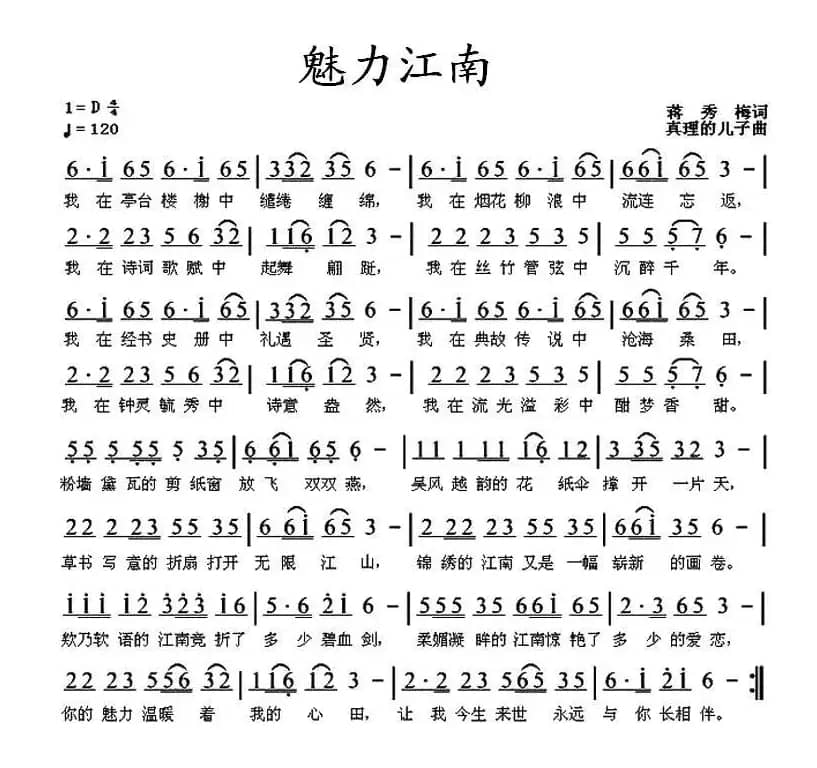 魅力江南
1=D 4/4
蒋 秀 梅词
♩=120
真理的儿子曲
6·i 65 6·i 65 | 332 35 6 - | 6·i 65 6·i 65 | 66i 65 3 - |
我 在 亭台 楼 榭 中 缱绻 缠 绵, 我 在 烟花 柳 浪 中 流连 忘 返,
2·2 23 5 6 32 | 116 12 3 - | 22 23 5 35 | 55 57 6 - |
我 在 诗词 歌 赋 中 起舞 翩 跹, 我 在 丝 竹 管 弦 中 沉 醉 千 年。
6·i 65 6·i 65 | 332 35 6 - | 6·i 65 6·i 65 | 66i 65 3 - |
我 在 经书 史 册 中 礼遇 圣 贤, 我 在 典故 传 说 中 沧海 桑 田,
2·2 23 5 6 32 | 116 12 3 - | 22 23 5 35 | 55 57 6 - |
我 在 钟灵 毓 秀 中 诗意 盎 然, 我 在 流 光 溢 彩 中 酣 梦 香 甜。
55 5 55 5 35 | 6 6i 65 6 - | 11 1 11 1 6 12 | 3 35 32 3 - |
粉墙 黛 瓦的 剪 纸窗 放 飞 双双 燕, 吴风 越 韵的 花 纸伞 撑 开 一片 天,
22 2 23 55 35 | 6 6i 65 3 - | 222 35 55 35 | 66i 35 6 - |
草书 写 意的 折扇 打开 无 限 江 山, 锦 绣的 江南 又是 一幅 崭新 的画 卷。
iii i2 323 i6 | 5·6 2i 6 - | 555 35 66i 65 | 2·3 65 3 - |
欸乃软 语的 江南竞 折了 多 少 碧血 剑, 柔媚凝 眸的 江南惊 艳了 多 少 的爱 恋,
22 23 556 32 | 116 12 3 - | 2·2 23 565 35 | 6·i 2i 6 - :||
你的 魅力 温暖 着 我的 心 田, 让 我 今生 来世 永远 与 你 长相 伴。